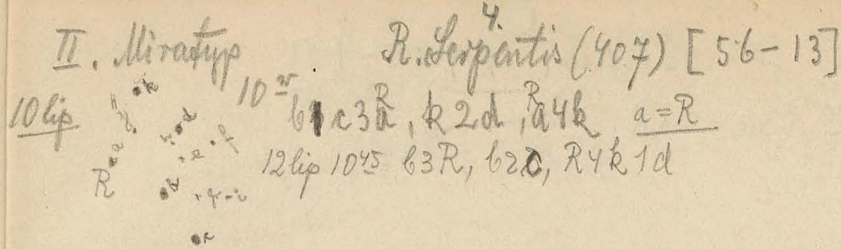 4.
II. Miratyp R. Serpentis (407) [56-13]
10 lip 10 b1c3R, k2d, R4k a=R
R
12 lip 10 45 b3R, b2c, R4k1d